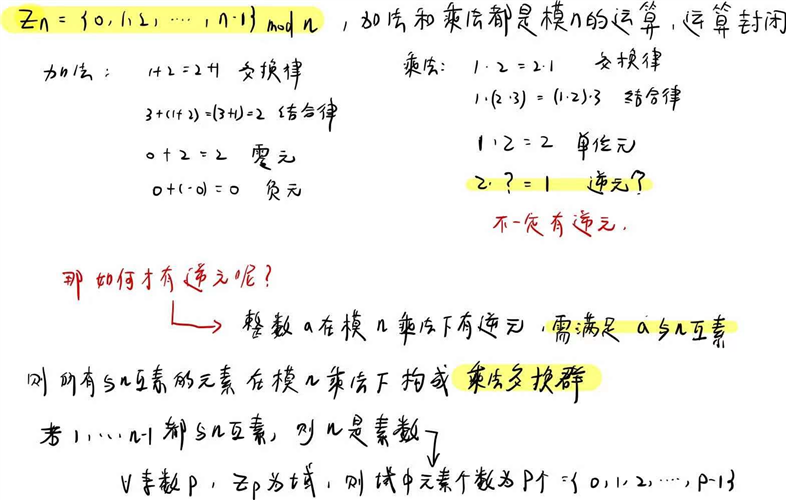 Zn = {0,1,2,…,n-1} mod n，加法和乘法都是模n的运算，运算封闭
加法： 1+2=2+1 交换律
3+(1+2)=(3+1)=2 结合律
0+2=2 零元
0+(-0)=0 负元
乘法： 1·2=2·1 交换律
1·(2·3)=(1·2)·3 结合律
1·2=2 单位元
2·?=1 逆元?
不一定有逆元.
那如何才有逆元呢?
→ 整数a在模n乘法下有逆元，需满足 a与n互素
则所有与n互素的元素在模n乘法下构成乘法交换群
若1,…,n-1都与n互素，则n是素数
∀素数p，Zp为域，则域中元素个数为P个={0,1,2,…,p-1}